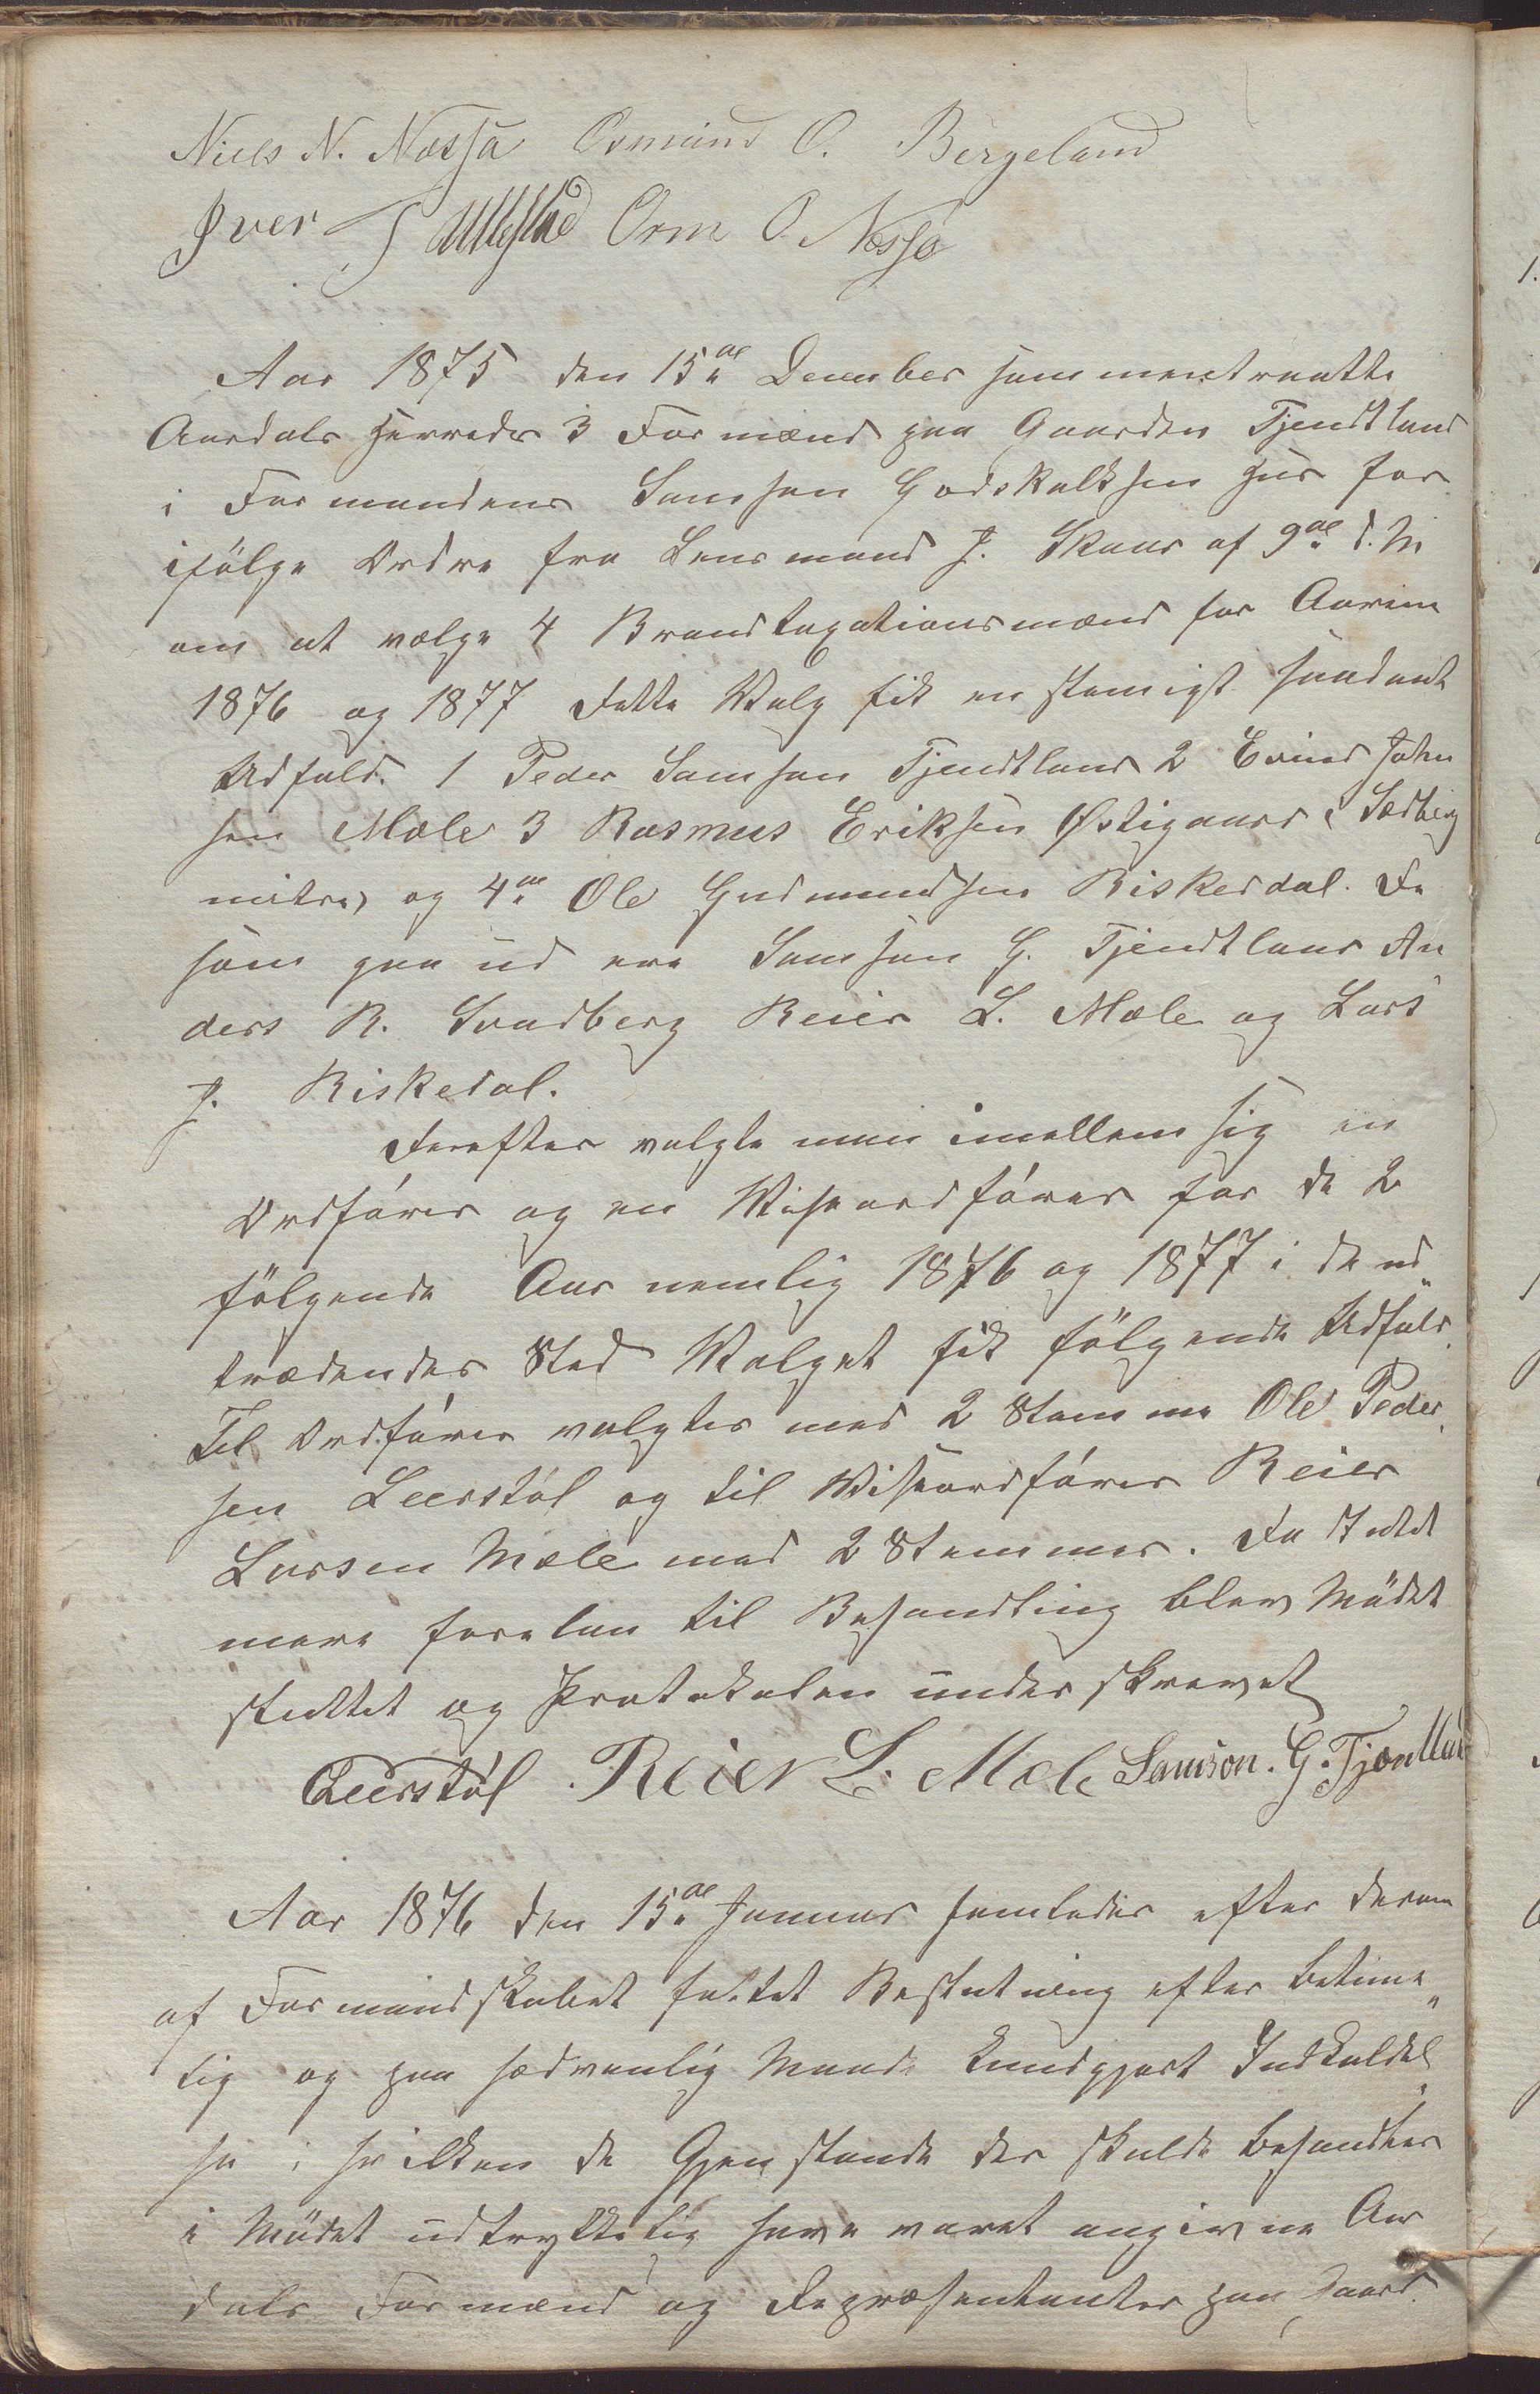 Niels N. Nøssa Osmund O. Bergeland
Iver J Ullestad Orm O. Nøssa
Aar 1875 den 15de December sammentraatte
Aardals Herreds 3 Formænd paa Gaarden Tjendtland
i Formandens Samson Godskalksen Hus for
ifølge Ordre fra Lensmand J. Skaar af 9de d. M.
om at vælge 4 Brandtaxationsmænd for Aarene
1876 og 1877 Dette Valg fik enstemigt saadant
Udfald. 1 Peder Samson Tjendtland 2 Evind John
sen Mæle 3 Rasmus Eriksen Østigaard,
og 4de Ole Gudmundsen Riskedal. De
som gaa ud ere Samson G. Tjendtland An
ders R. Svadberg Reier L. Mæle og Lars
J. Riskedal.
Derefter valgte man imellem sig en
Ordfører og en Viseordfører for de 2
følgende Aar nemlig 1876 og 1877 i de ud„
trædendes Sted Valget fik følgende Udfald.
Til Ordfører valgtes med 2 Stemme Ole Peder
sen Leerstøl og til Viseordfører Reier
Larsen Mæle med 2 Stemmer. Da Intet
mere forelaa til Behandling blev Mødet
sluttet og Protokolen underskrevet
Leerstøl Reier L. Mæle Samson. G. Tjentland
Aar 1876 den 15de Januar samledes efter derom
af Formandskabet fattet Beslutning efter betime„
lig og paa sædvanlig Maade kundgjort Indkaldel„
se i hvilken de Gjenstande der skulde behandles
i Mødet udtrykkelig have været angivne Aar
dals Formænd og Repræsentanter paa Gaard.